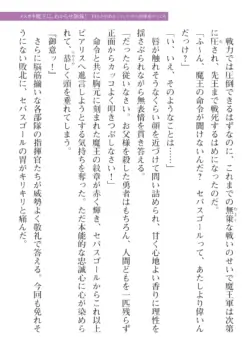 戦力では圧倒できるはずなのに、これまでの無策な戦いのせいで魔王軍は次第
に圧され、先王まで戦死するはめになったのだ。
「ふぅん、魔王の命令が聞けないんだ？　セバスゴールって、あたしより偉いん
だ？」
「い、いえ、そのようなことは……」
唇が触れそうなくらい顔を近づけて問い詰められ、甘く心地よい香りに理性を
揺さぶられながら無表情を貫き答える。
「だったら従いなさい。お父様を殺した勇者はもちろん、人間どもを一匹残らず
正面からカッコよくブチ殺してやるんだから！」
命令と共に胸元に刻まれた魔王の紋章が赤く輝き、セバスゴールからこれ以上
ピアリスへ進言しようとする気持ちを奪った。ただ本能的な忠誠心に心が染めら
れ、
「御意……っ」
さらに脳筋揃いな各部隊の指揮官たちが威勢よく敬礼で答える。今回も免れそ
うにない敗北に、セバスゴールの胃がキリキリと痛んだ。